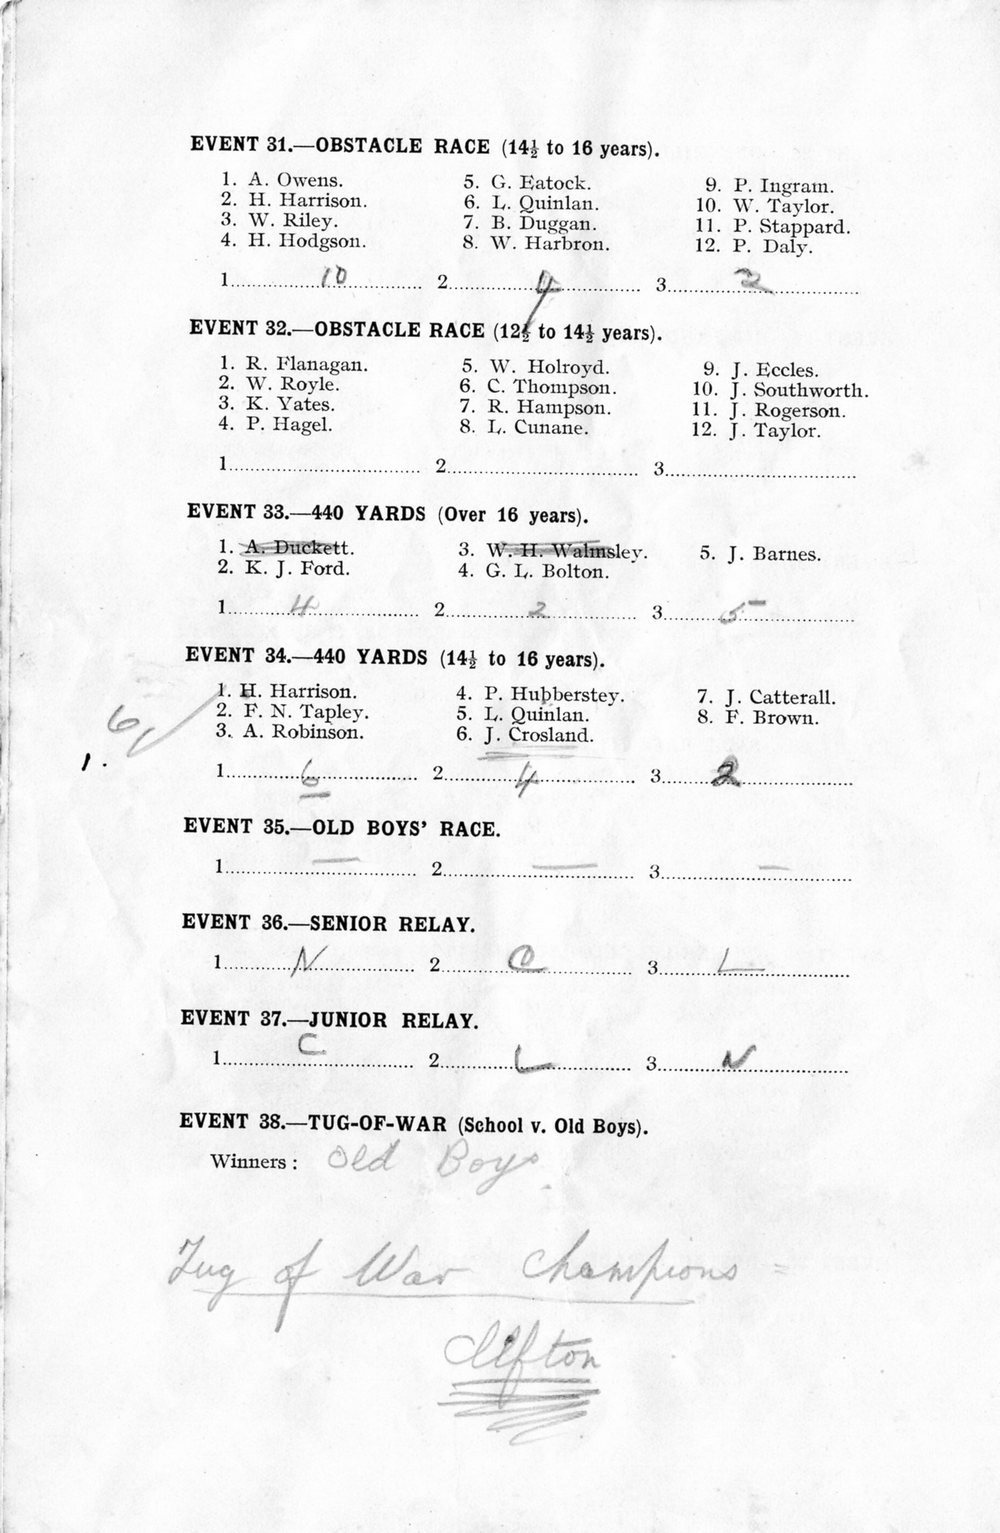 EVENT 31.—OBSTACLE RACE (14½ to 16 years).
1. A. Owens. 5. G. Eatock. 9. P. Ingram.
2. H. Harrison. 6. L. Quinlan. 10. W. Taylor.
3. W. Riley. 7. B. Duggan. 11. P. Stappard.
4. H. Hodgson. 8. W. Harbron. 12. P. Daly.
1 10 2 4 3 2
EVENT 32.—OBSTACLE RACE (12½ to 14½ years).
1. R. Flanagan. 5. W. Holroyd. 9. J. Eccles.
2. W. Royle. 6. C. Thompson. 10. J. Southworth.
3. K. Yates. 7. R. Hampson. 11. J. Rogerson.
4. P. Hagel. 8. L. Cunane. 12. J. Taylor.
1 2 3
EVENT 33.—440 YARDS (Over 16 years).
1. A. Duckett. 3. W. H. Walmsley. 5. J. Barnes.
2. K. J. Ford. 4. G. L. Bolton.
1 4 2 2 3 5
EVENT 34.—440 YARDS (14½ to 16 years).
1. H. Harrison. 4. P. Hubberstey. 7. J. Catterall.
6 2. F. N. Tapley. 5. L. Quinlan. 8. F. Brown.
3. A. Robinson. 6. J. Crosland.
1.
1 6 2 4 3 2
EVENT 35.—OLD BOYS' RACE.
1 — 2 — 3 —
EVENT 36.—SENIOR RELAY.
1 N 2 C 3 L
EVENT 37.—JUNIOR RELAY.
1 C 2 L 3 N
EVENT 38.—TUG-OF-WAR (School v. Old Boys).
Winners : Old Boys.
Tug of War Champions =
Clifton